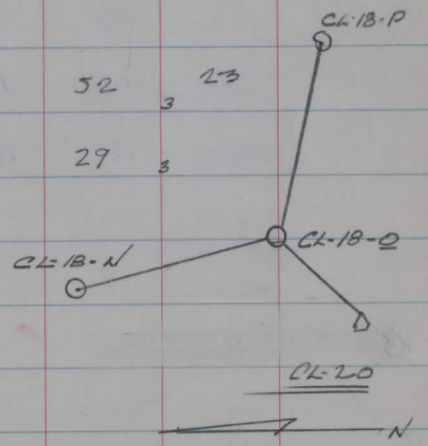 CL-18-P
52 23
3
29 3
CL-18-O
CL-18-N
CL-20
N